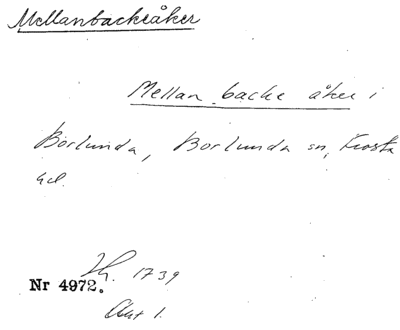 Mellanbacksåker
Mellan backe åker i
Borlunda, Borlunda sn, Frosta
hd.
1739
Nr 4972.
Akt 1.